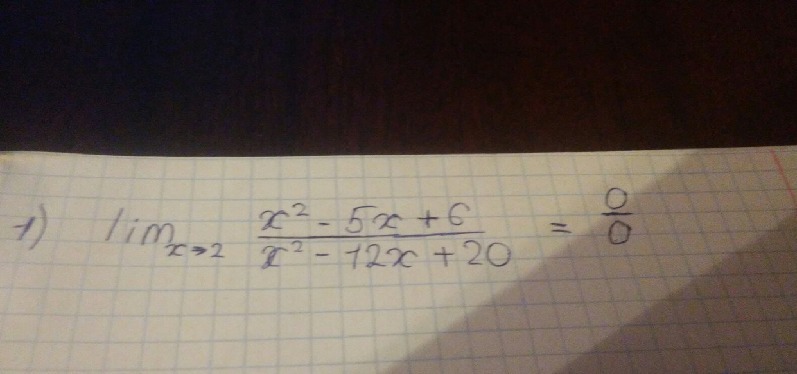 1) lim x→2 (x² - 5x + 6)/(x² - 12x + 20) = 0/0